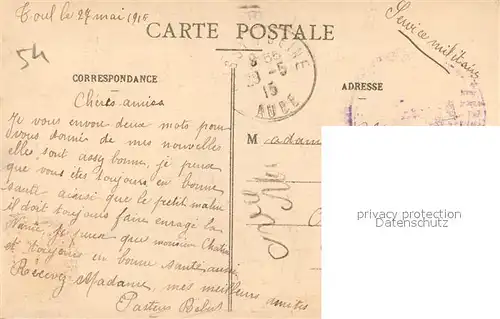 Toul le 27 mai 1915
CARTE POSTALE
Service militaire
54
CORRESPONDANCE
ADRESSE
Chères amies
AUBE
15
Je vous envoi deux mots pour
vous donné de mes nouvelle
elle sont assy bonne, je pense
que vous êtes toujours en bonne
santé ainsi que le petit malin
il doit toujours faire enragé la
et toujours en bonne santé aussi
Je pense que monsieur
Recevez Madame, mes meilleurs amitiés
M adam
privacy protection
Datenschutz